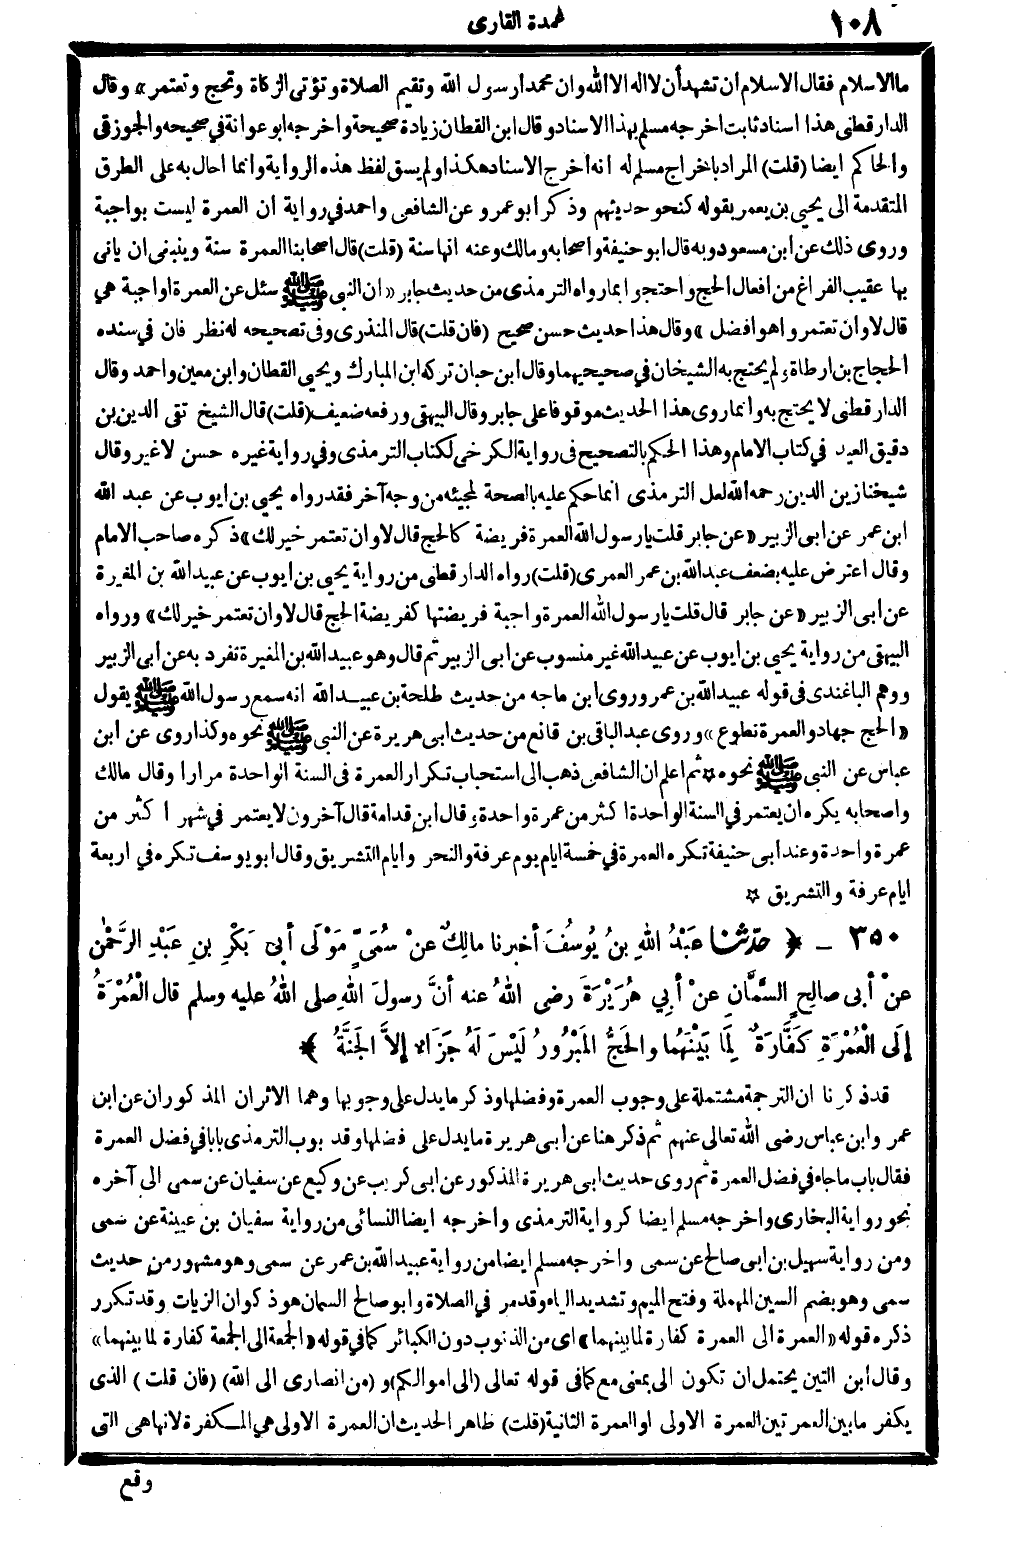 ١٠٨
عمدة القارى
ما الاسلام فقال الاسلام ان تشهد أن لا اله الا الله وان محمدا رسول الله وتقيم الصلاة وتؤتى الزكاة وتحج وتعتمر» وقال
الدارقطنى هذا اسناد ثابت اخرجه مسلم بهذا الاسناد وقال ابن القطان زيادة صحيحة واخرجه ابو عوانة في صحيحه والجوزقى
والحاكم ايضا (قلت) المراد باخراج مسلم له انه اخرج الاسناد هكذا ولم يسق لفظ هذه الرواية وانما احال به على الطرق
المتقدمة الى يحيى بن يعمر بقوله كنحو حديثهم وذكر ابو عمرو عن الشافعى واحمد في رواية ان العمرة ليست بواجبة
وروى ذلك عن ابن مسعود وبه قال ابو حنيفة واصحابه ومالك وعنه انها سنة (قلت) قال اصحابنا العمرة سنة وينبغى ان ياتى
بها عقيب الفراغ من افعال الحج واحتجوا بما رواه الترمذى من حديث جابر «ان النبى ﷺ سئل عن العمرة اواجبة هى
قال لا وان تعتمروا هو افضل» وقال هذا حديث حسن صحيح (فان قلت) قال المنذرى وفى تصحيحه له نظر فان في سنده
الحجاج بن ارطاة ولم يحتج به الشيخان في صحيحيهما وقال ابن حبان تركه ابن المبارك ويحيى القطان وابن معين واحمد وقال
الدارقطنى لا يحتج به وانما روى هذا الحديث موقوفا على جابر وقال البيهقى ورفعه ضعيف (قلت) قال الشيخ تقى الدين بن
دقيق العيد في كتاب الامام وهذا الحكم بالتصحيح فى رواية الكرخى لكتاب الترمذى وفي رواية غيره حسن لا غير وقال
شيخنا زين الدين رحمه الله لعل الترمذى انما حكم عليه بالصحة لمجيئه من وجه آخر فقد رواه يحيى بن ايوب عن عبد الله
ابن عمر عن ابى الزبير «عن جابر قلت يارسول الله العمرة فريضة كالحج قال لا وان تعتمر خير لك» ذكره صاحب الامام
وقال اعترض عليه بضعف عبد الله بن عمر العمرى (قلت) رواه الدارقطنى من رواية يحيى بن ايوب عن عبيد الله بن المغيرة
عن ابى الزبير «عن جابر قال قلت يارسول الله العمرة واجبة فريضتها كفريضة الحج قال لا وان تعتمر خير لك» ورواه
البيهقى من رواية يحيى بن ايوب عن عبيد الله غير منسوب عن ابى الزبير ثم قال وهو عبيد الله بن المغيرة تفرد به عن ابى الزبير
ووهم الباغندى فى قوله عبيد الله بن عمر وروى ابن ماجه من حديث طلحة بن عبيد الله انه سمع رسول الله ﷺ يقول
«الحج جهاد والعمرة تطوع» وروى عبد الباقى بن قانع من حديث ابى هريرة عن النبى ﷺ نحوه وكذا روى عن ابن
عباس عن النبى ﷺ نحوه ☆ ثم اعلم ان الشافعى ذهب الى استحباب تكرار العمرة فى السنة الواحدة مرارا وقال مالك
واصحابه يكره ان يعتمر في السنة الواحدة اكثر من عمرة واحدة وقال ابن قدامة قال آخرون لا يعتمر في شهر اكثر من
عمرة واحدة وعند ابى حنيفة تكره العمرة في خمسة ايام يوم عرفة والنحر وايام التشريق وقال ابو يوسف تكره في اربعة
ايام عرفة والتشريق ☆
٣٥٠ - ﴿ حدثنا عَبْدُ اللهِ بنُ يُوسُفَ أخبرنا مالِكٌ عنْ سُمَىٍّ مَوْلَى أبى بَكْرِ بنِ عَبْدِ الرَّحْمٰنِ
عنْ أبى صالِحٍ السَّمَّانِ عنْ أبِي هُرَيْرَةَ رضى اللهُ عنه أنَّ رسولَ اللهِ صلى اللهُ عليه وسلم قال الْعُمْرَةُ
إلَى الْعُمْرَةِ كَفَّارَةٌ لِمَا بَيْنَهُما والحَجُّ المَبْرُورُ لَيْسَ لَهُ جَزَاءٌ إلاَّ الجَنَّةُ ﴾
قد ذكرنا ان الترجمة مشتملة على وجوب العمرة وفضلها وذكر ما يدل على وجوبها وهما الاثران المذكوران عن ابن
عمر وابن عباس رضى الله تعالى عنهم ثم ذكر هنا عن ابى هريرة ما يدل على فضلها وقد بوب الترمذى بابا في فضل العمرة
فقال باب ما جاء في فضل العمرة ثم روى حديث ابى هريرة المذكور عن ابى كريب عن وكيع عن سفيان عن سمى الى آخره
نحو رواية البخارى واخرجه مسلم ايضا كرواية الترمذى واخرجه ايضا النسائى من رواية سفيان بن عيينة عن سمى
ومن رواية سهيل بن ابى صالح عن سمى واخرجه مسلم ايضا من رواية عبيد الله بن عمر عن سمى وهو مشهور من حديث
سمى وهو بضم السين المهملة وفتح الميم وتشديد الياء وقد مر في الصلاة وابو صالح السمان هو ذكوان الزيات وقد تكرر
ذكره قوله «العمرة الى العمرة كفارة لما بينهما» اى من الذنوب دون الكبائر كما في قوله «الجمعة الى الجمعة كفارة لما بينهما»
وقال ابن التين يحتمل ان تكون الى بمعنى مع كما فى قوله تعالى (الى اموالكم) و (من انصارى الى الله) (فان قلت) الذى
يكفر ما بين العمرتين العمرة الاولى او العمرة الثانية (قلت) ظاهر الحديث ان العمرة الاولى هي المكفرة لانها هى التى
وقع